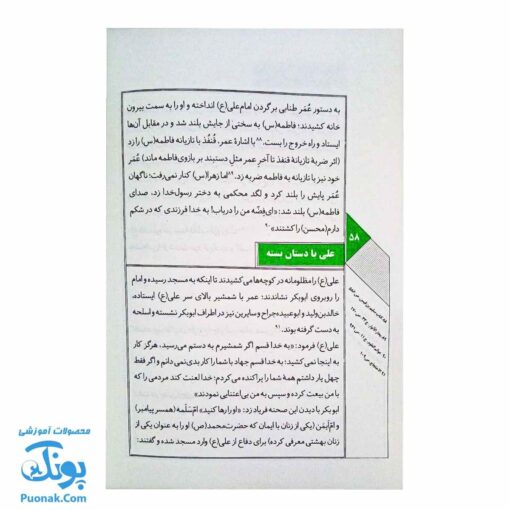 به دستور عُمَر طنابی بر گردن امام‌علی(ع) انداخته و او را به سمت بیرون
خانه کشیدند؛ فاطمه(س) به سختی از جایش بلند شد و در مقابل آن‌ها
ایستاد و راه خروج را بست.۸۸ با اشارهٔ عمر، قُنفُذ با تازیانه فاطمه(س) را زد
(اثر ضربهٔ تازیانهٔ قنفذ تا آخر عمر مثل دستبند بر بازوی فاطمه ماند) عُمَر
خود نیز با تازیانه به فاطمه ضربه زد.۸۹ اما زهرا(س) کنار نمی‌رفت؛ ناگهان
عُمَر پایش را بلند کرد و لگد محکمی به دختر رسول‌خدا زد، صدای
فاطمه(س) بلند شد: «ای فِضّه من را دریاب! به خدا فرزندی که در شکم
دارم (محسن) را کشتند»۹۰
۵۸
علی با دستان بسته
علی(ع) را مظلومانه در کوچه‌ها می کشیدند تا اینکه به مسجد رسیده و امام
را روبروی ابوبکر نشاندند؛ عمر با شمشیر بالای سر علی(ع) ایستاده،
خالدبن‌ولید و ابوعبیده‌جراح و سایرین نیز در اطراف ابوبکر نشسته و اسلحه
به دست گرفته بوند.۹۱
علی(ع) فرمود: «به خدا قسم اگر شمشیرم به دستم می‌رسید، هرگز کار
به اینجا نمی کشید؛ به خدا قسم جهاد با شما را کار بدی نمی دانم و اگر فقط
چهل یار داشتم همهٔ شما را پراکنده می کردم؛ خدا لعنت کند مردمی را که
با من بیعت کرده و سپس به من بی‌اعتنایی نمودند»
ابوبکر با دیدن این صحنه فریاد زد: «او را رها کنید» امّ‌سَلَمه (همسر پیامبر)
و امّ‌اَیمَن (یکی از زنان با ایمان که حضرت‌محمد(ص) او را به عنوان یکی از
زنان بهشتی معرفی کرده) برای دفاع از علی(ع) وارد مسجد شده و گفتند:
محصولات آموزشی
پونک
Puonak.Com